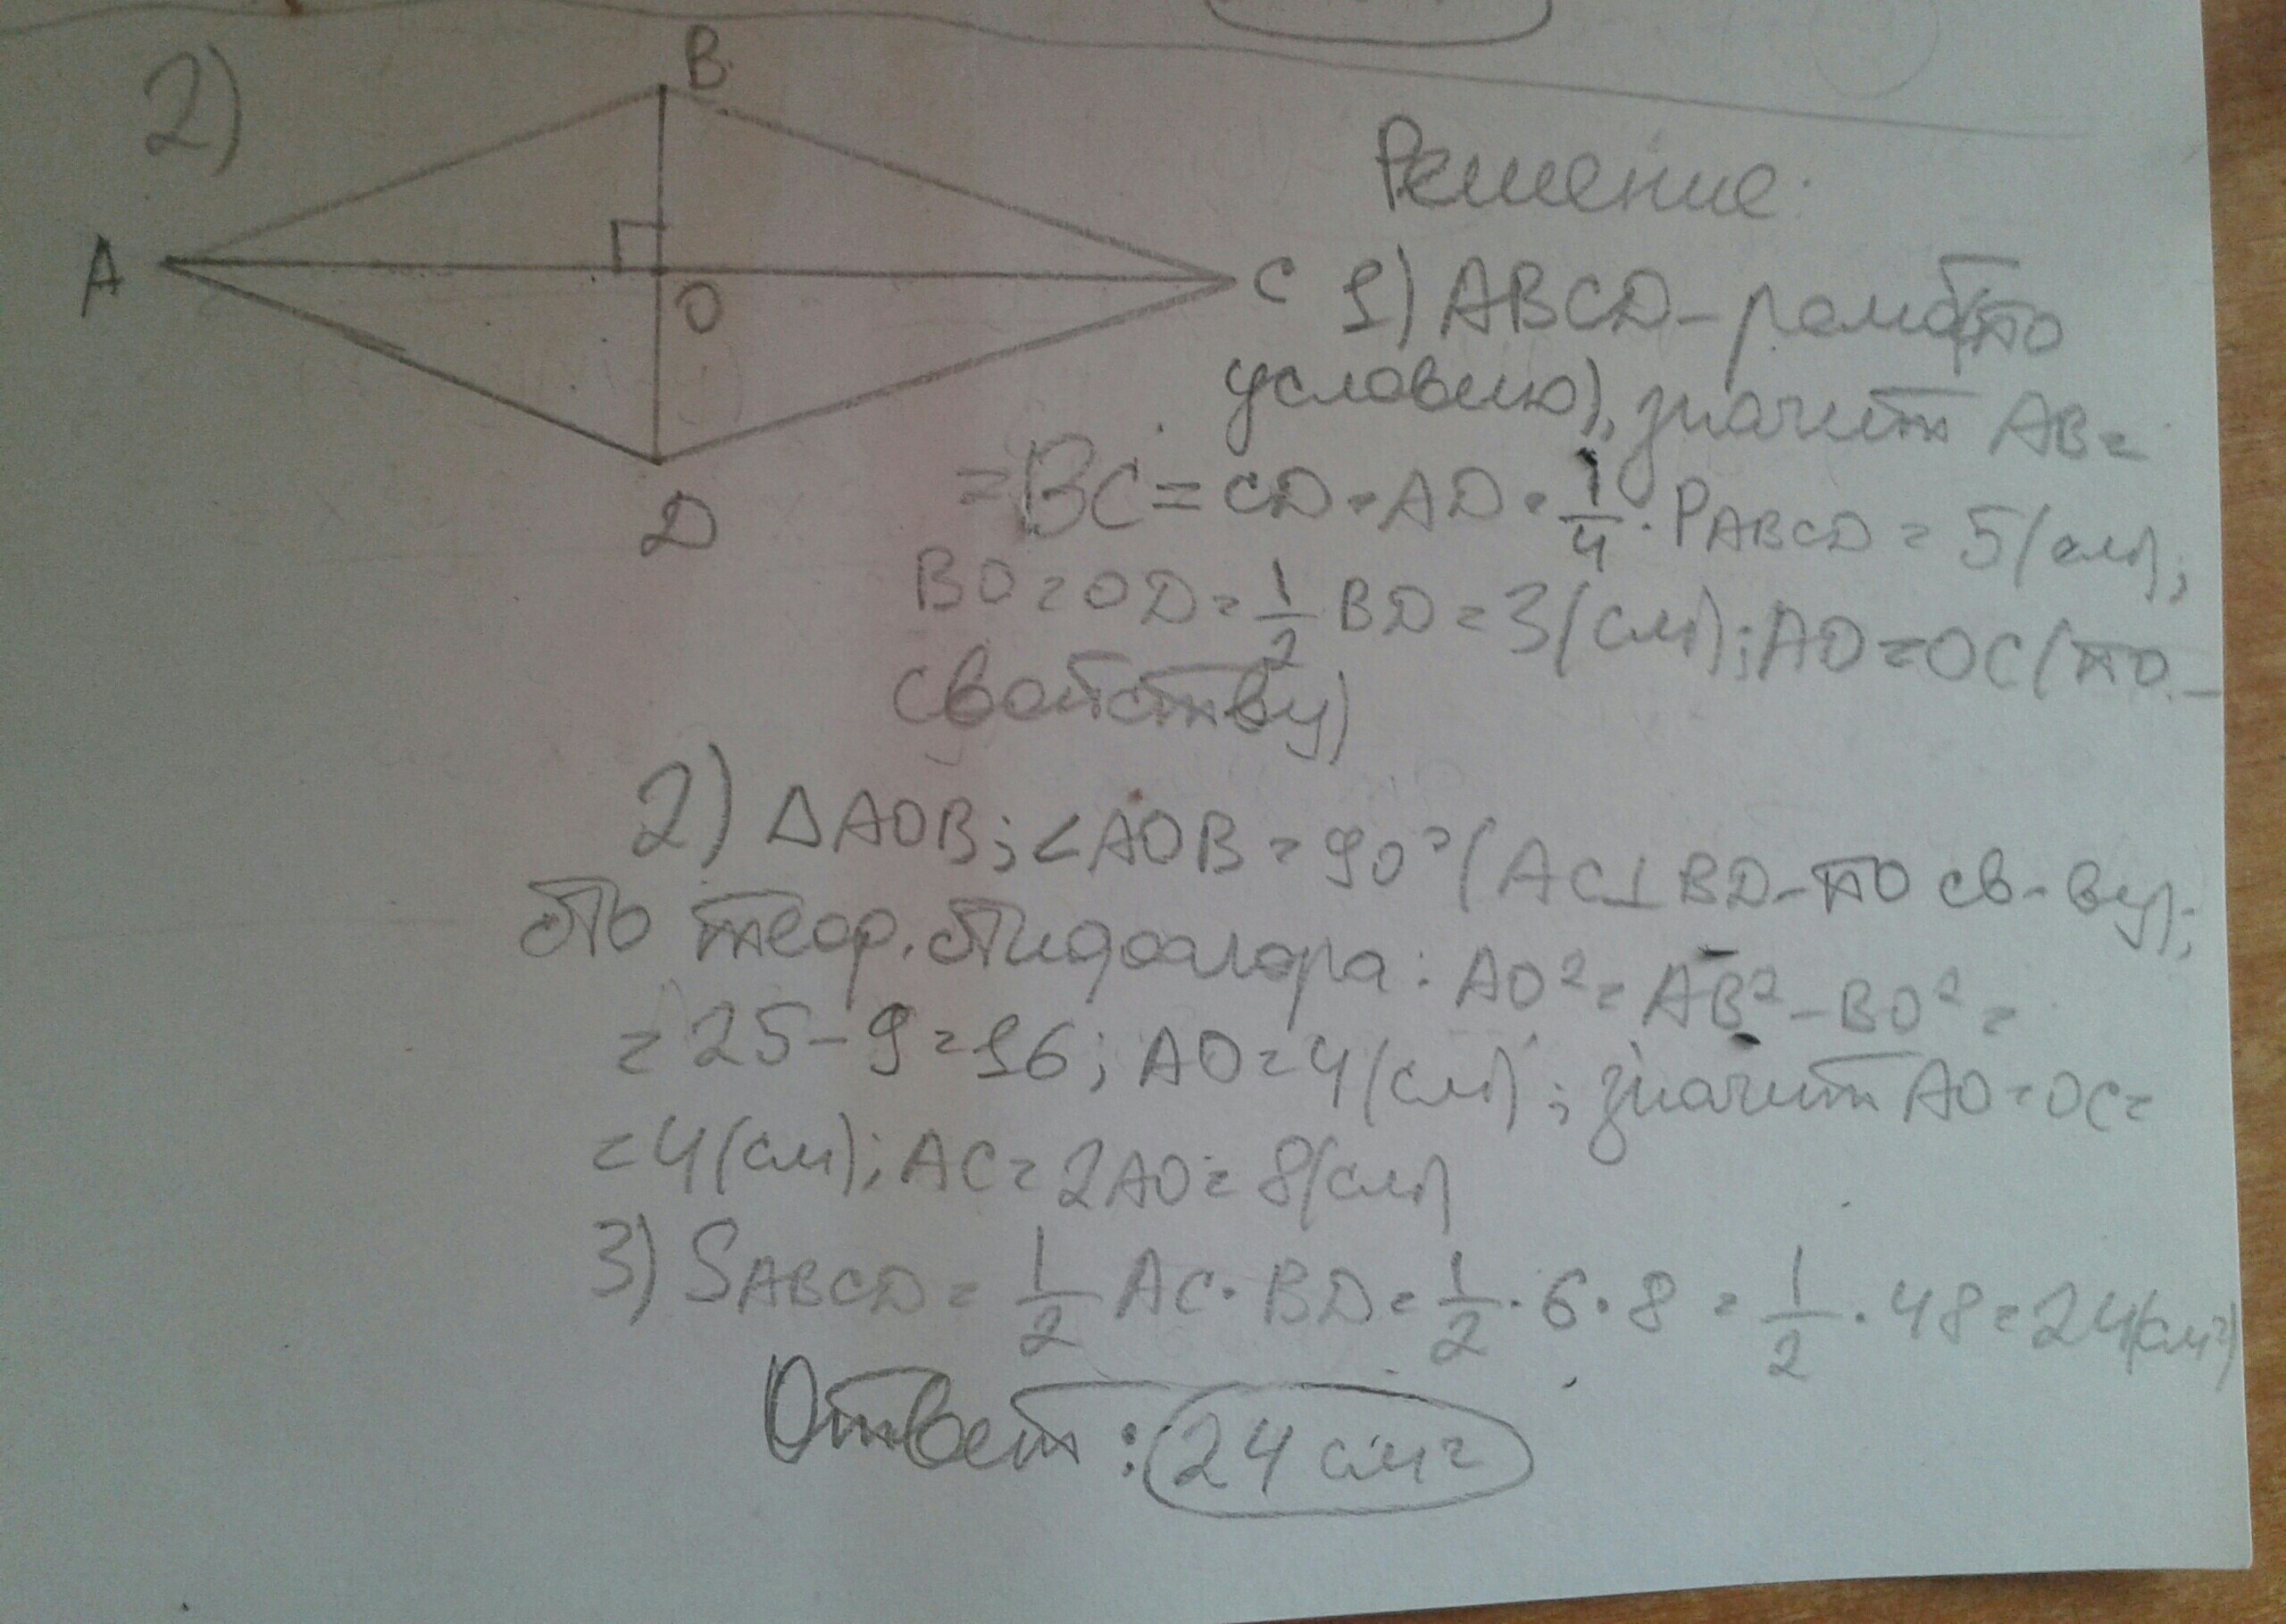 2)
B
A
O
C
D
Решение:
1) ABCD - ромб (по
условию), значит AB =
= BC = CD = AD = 1/4 · PABCD = 5 (см);
BO = OD = 1/2 BD = 3 (см); AO = OC (по
свойству)
2) △AOB; ∠AOB = 90° (AC⊥BD - по св-ву);
По теор. Пифагора: AO² = AB² - BO² =
= 25 - 9 = 16; AO = 4 (см); значит AO = OC =
= 4 (см); AC = 2AO = 8 (см)
3) SABCD = 1/2 AC · BD = 1/2 · 6 · 8 = 1/2 · 48 = 24 (см²)
Ответ: 24 см²